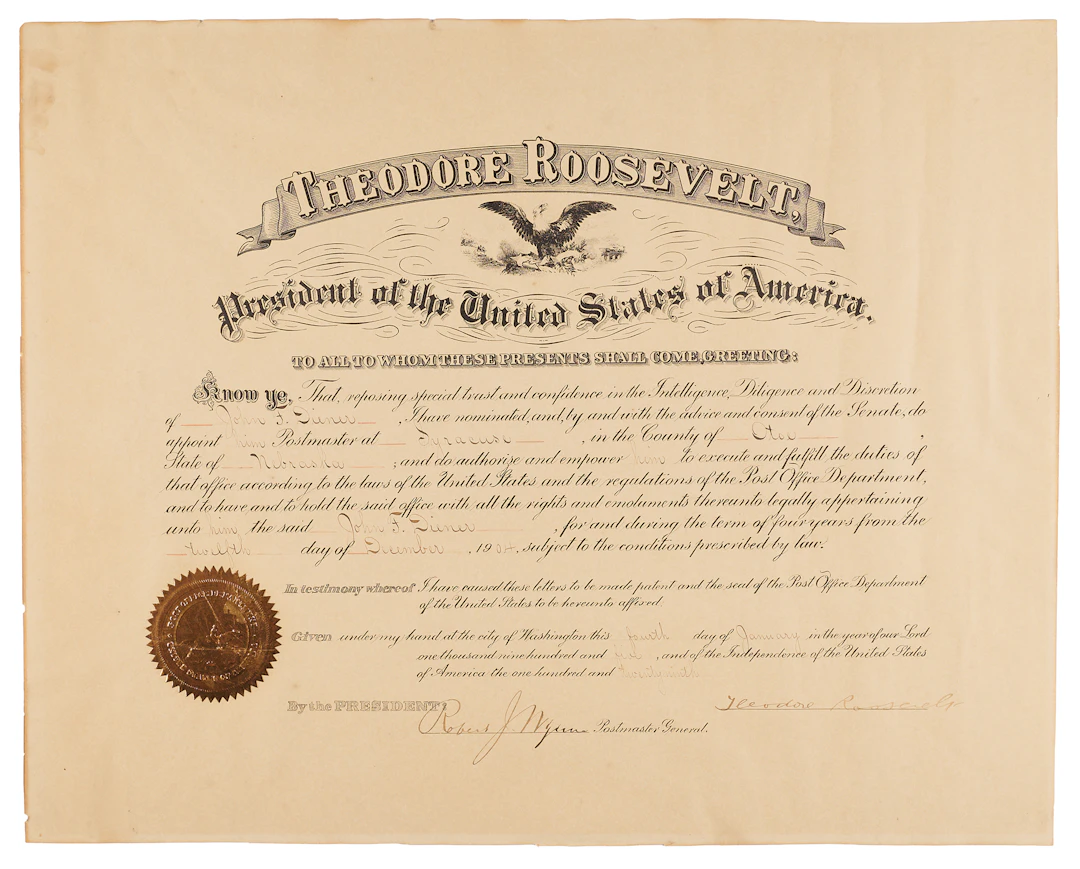 THEODORE ROOSEVELT,
President of the United States of America.
TO ALL TO WHOM THESE PRESENTS SHALL COME, GREETING:
Know ye, That, reposing special trust and confidence in the Intelligence, Diligence and Discretion
of John F. , I have nominated, and, by and with the advice and consent of the Senate, do
appoint him Postmaster at Syracuse , in the County of Otoe ,
State of Nebraska ; and do authorize and empower him to execute and fulfill the duties of
that office according to the laws of the United States and the regulations of the Post Office Department,
and to have and to hold the said office with all the rights and emoluments thereunto legally appertaining
unto him, the said John F. , for and during the term of four years from the
twelfth day of December , 1904, subject to the conditions prescribed by law.
In testimony whereof I have caused these letters to be made patent and the seal of the Post Office Department
of the United States to be hereunto affixed.
Given under my hand at the city of Washington this fourth day of January in the year of our Lord
one thousand nine hundred and , and of the Independence of the United States
of America the one hundred and twenty-ninth
By the PRESIDENT: Theodore Roosevelt
Robert J. Wynne Postmaster General.